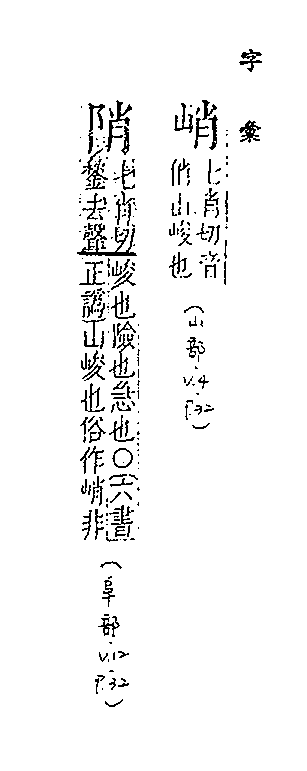 字彙
峭
七肖切音
俏山峻也
(山部 V.4 P.32)
陗
七肖切
鍫去聲
峻也險也急也〇六書
正譌山峻也俗作峭非
(阜部 V.12 P.32)